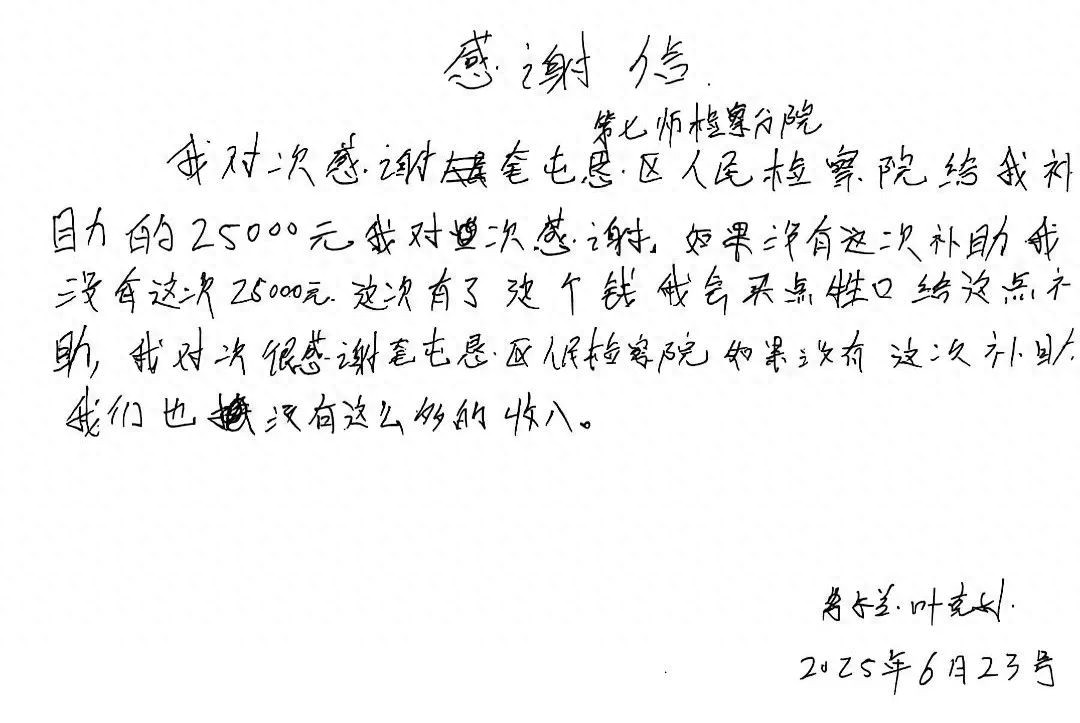 感谢信.
第七师检察分院
我对次感谢奎屯恳区人民检察院给我补
助的25000元我对次感谢,如果没有这次补助我
没有这次25000元.这次有了这个钱我会买点牲口给这点补
助,我对次很感谢奎屯恳区人民检察院如果没有这次补助
我们也没有这么多的收入。
叶克
2025年6月23号